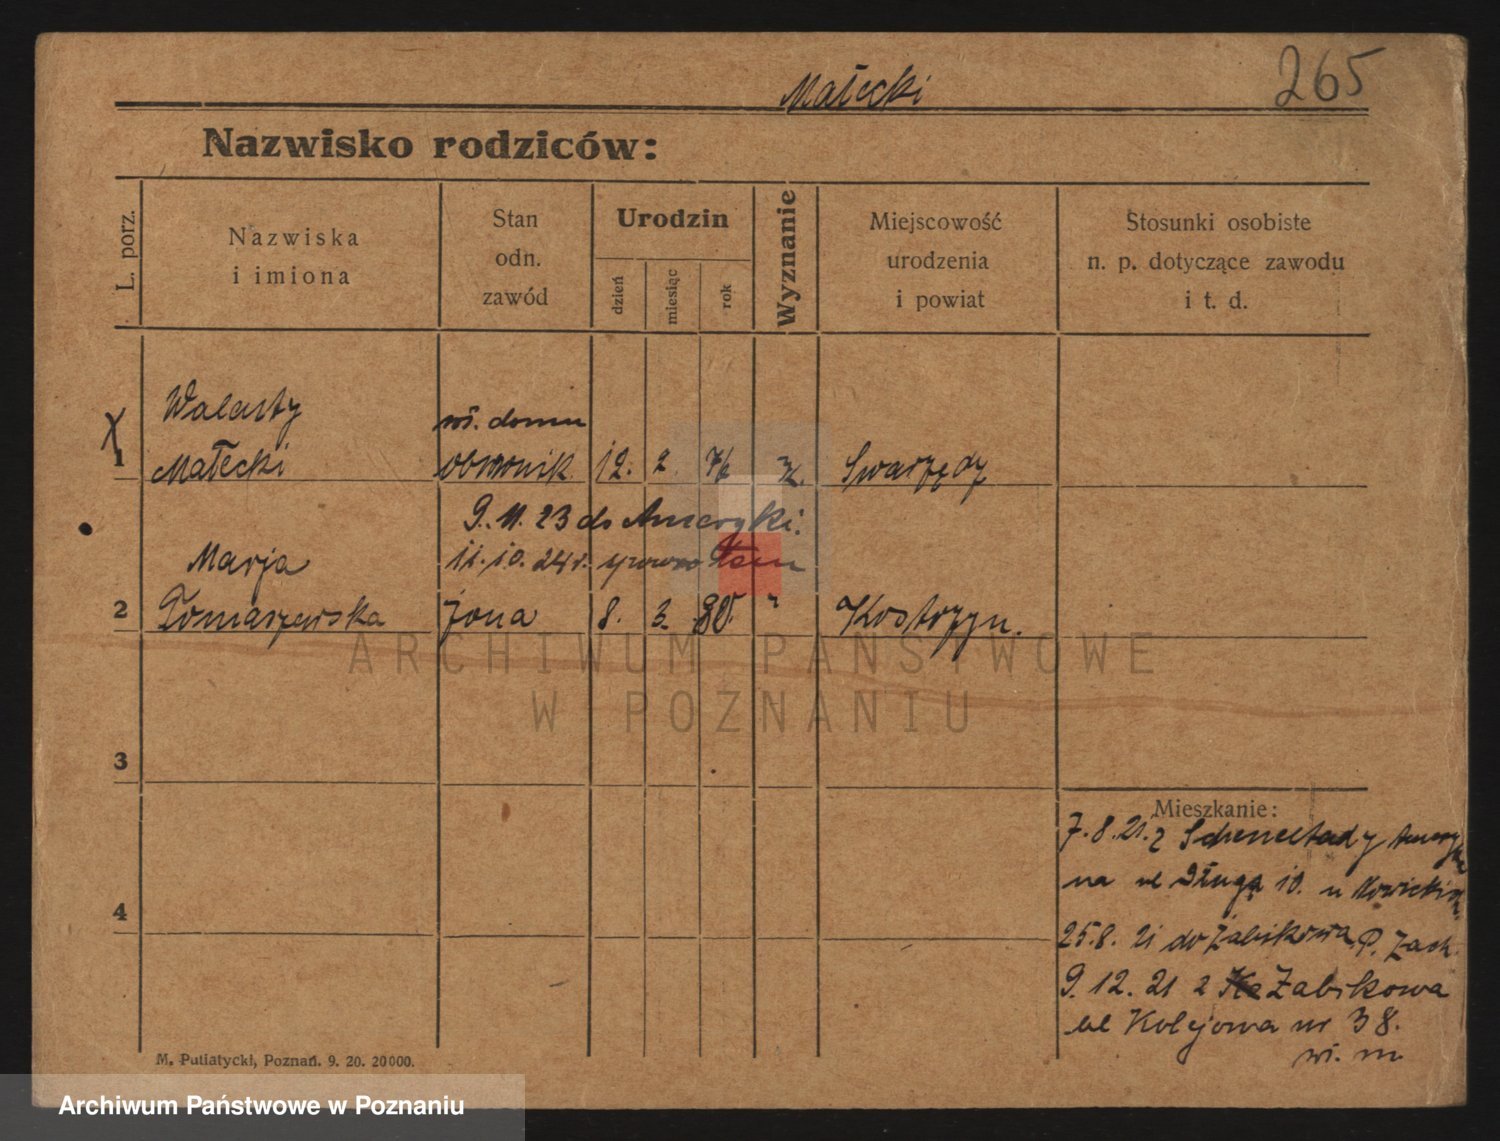 Małecki
265
Nazwisko rodziców:
L. porz.
Nazwiska
i imiona
Stan
odn.
zawód
Urodzin
dzień
miesiąc
rok
Wyznanie
Miejscowość
urodzenia
i powiat
Stosunki osobiste
n. p. dotyczące zawodu
i t. d.
Walenty
wł. domu
1 Małecki 12. 2. Swarzędy
9. 11. 23 do Ameryki.
Marja 11. 10. 24 r.
2 Tomaszewska żona 8. 3. 80. " Kostrzyn.
ARCHIWUM PAŃSTWOWE
W POZNANIU
3
Mieszkanie:
7. 8. 21. z Schenectady
na ul Długa 10. u
25. 8. 21 do Żabikowa, P. Zach.
4
9. 12. 21 z Żabikowa
ul Kolejowa nr 38.
wł. m
M. Putiatycki, Poznań. 9. 20. 20000.
Archiwum Państwowe w Poznaniu